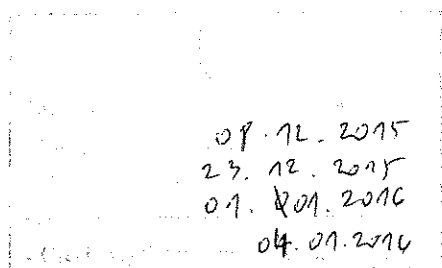 08.12.2015
23.12.2015
01.01.2016
04.01.2016